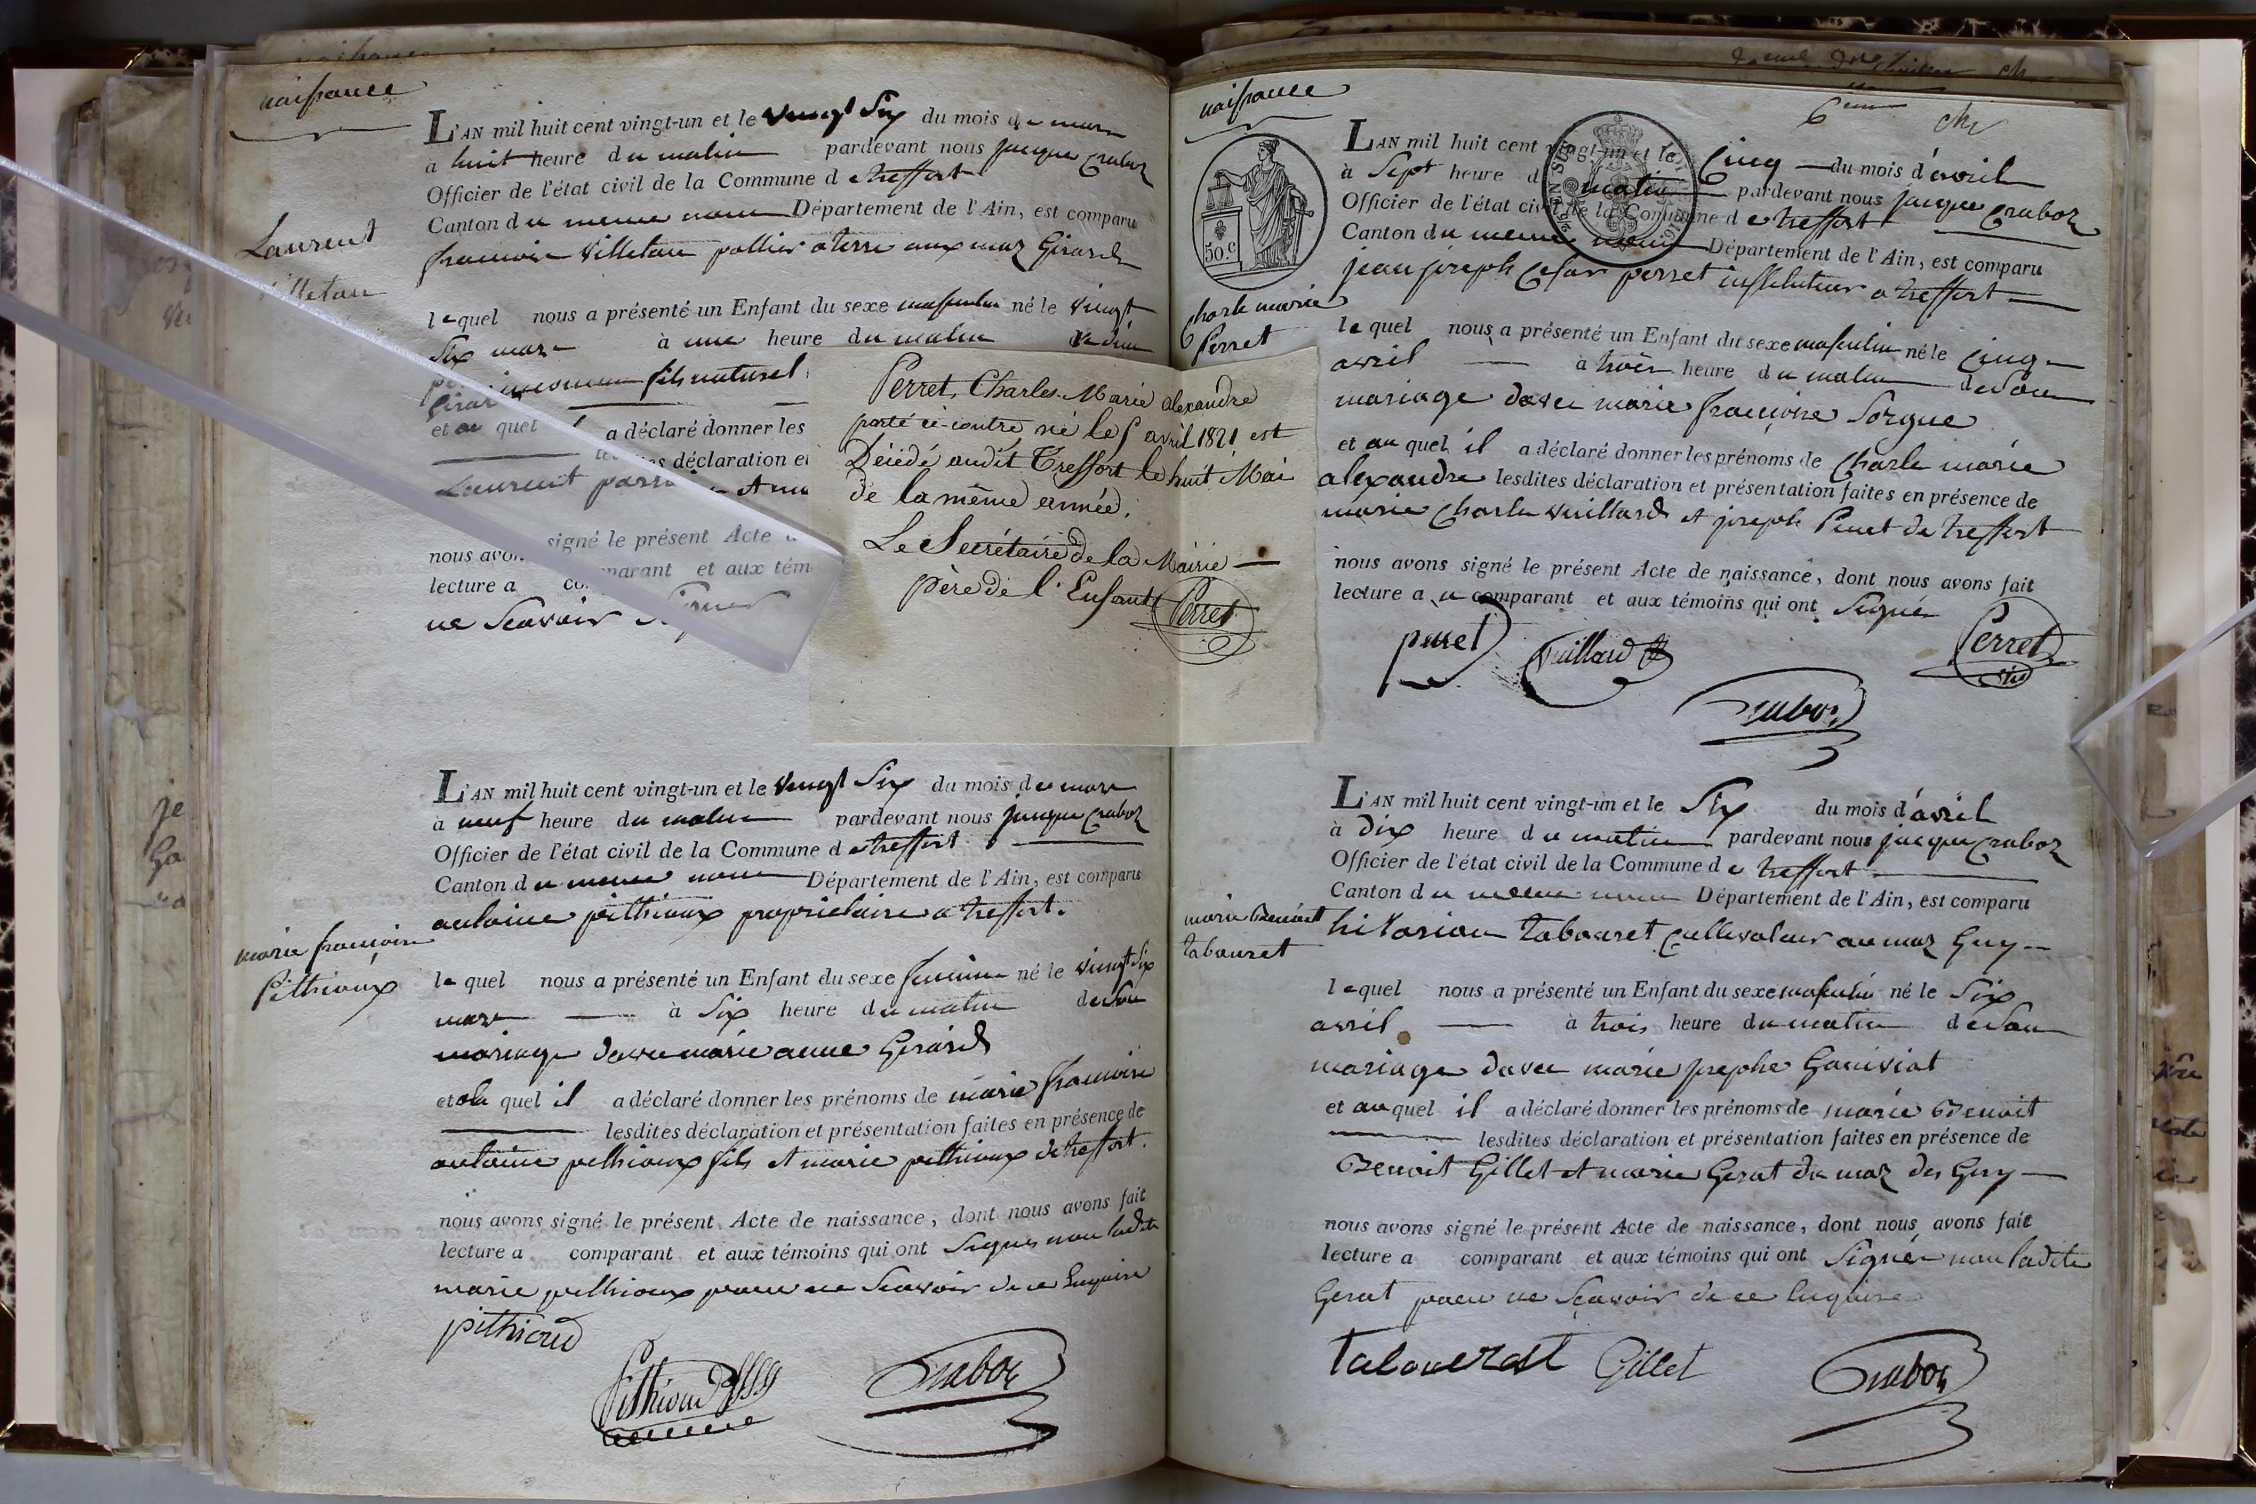 naissance
L'AN mil huit cent vingt-un et le vingt Six du mois de mars
à huit heure du matin pardevant nous jacque Craboz
Officier de l'état civil de la Commune de treffort
Canton du meme nom Département de l'Ain, est comparu
francoise Villetan aux maz Girard
Laurent
Villetan
lequel nous a présenté un Enfant du sexe masculin né le vingt
Six mars à une heure du matin
fils naturel
et au quel a déclaré donner les
déclaration et
Laurent
nous avons signé le présent Acte
lecture a comparant et aux tém
ne Scavoir Signer
L'AN mil huit cent vingt-un et le vingt Six du mois de mars
à neuf heure du matin pardevant nous jacque Craboz
Officier de l'état civil de la Commune de treffort
Canton du meme nom Département de l'Ain, est comparu
antoine pithioux proprietaire a treffort.
marie francoise
Pithioux
lequel nous a présenté un Enfant du sexe feminin né le vingt Six
mars à Six heure du matin de Son
mariage davec marie anne Girard
et au quel il a déclaré donner les prénoms de marie francoise
lesdites déclaration et présentation faites en présence de
antoine pithioux fils et marie pithioux de treffort.
nous avons signé le présent Acte de naissance, dont nous avons fait
lecture a comparant et aux témoins qui ont Signés non ladite
marie pithioux pour ne Scavoir de ce Enquise
pithioud
Pithioud
Craboz
Perret, Charles-Marie alexandre
porté ci-contre né le 5 avril 1821 est
Décédé audit Treffort le huit Mai
de la même année.
Le Secrétaire de la Mairie
père de l'Enfant
Perret
naissance
50.c
L'AN mil huit cent vingt-un et le Cinq du mois d'avril
à Sept heure du matin pardevant nous jacque Craboz
Officier de l'état civil de la Commune de treffort
Canton du meme nom Département de l'Ain, est comparu
jean joseph Cesar perret instituteur a treffort
Charle marie
Perret
lequel nous a présenté un Enfant du sexe masculin né le Cinq
avril à trois heure du matin de Son
mariage davec marie francoise Sorgue
et au quel il a déclaré donner les prénoms de Charle marie
alexandre lesdites déclaration et présentation faites en présence de
marie Charle vuillard et joseph Puret de treffort
nous avons signé le présent Acte de naissance, dont nous avons fait
lecture au comparant et aux témoins qui ont Signé
puret
Vuillard
Perret
Craboz
L'AN mil huit cent vingt-un et le Six du mois d'avril
à dix heure du matin pardevant nous jacque Craboz
Officier de l'état civil de la Commune de treffort
Canton du meme nom Département de l'Ain, est comparu
marie Benoist
tabouret
hilarion tabouret Cultivateur au maz Guy
lequel nous a présenté un Enfant du sexe masculin né le Six
avril à trois heure du matin de Son
mariage davec marie josephe Ganiviat
et au quel il a déclaré donner les prénoms de marie Benoit
lesdites déclaration et présentation faites en présence de
Benoit Gillet et marie Gerat du maz des Guy
nous avons signé le présent Acte de naissance, dont nous avons fait
lecture a comparant et aux témoins qui ont Signés non ladite
Gerat pour ne Sçavoir de ce Enquise
Gillet
Craboz